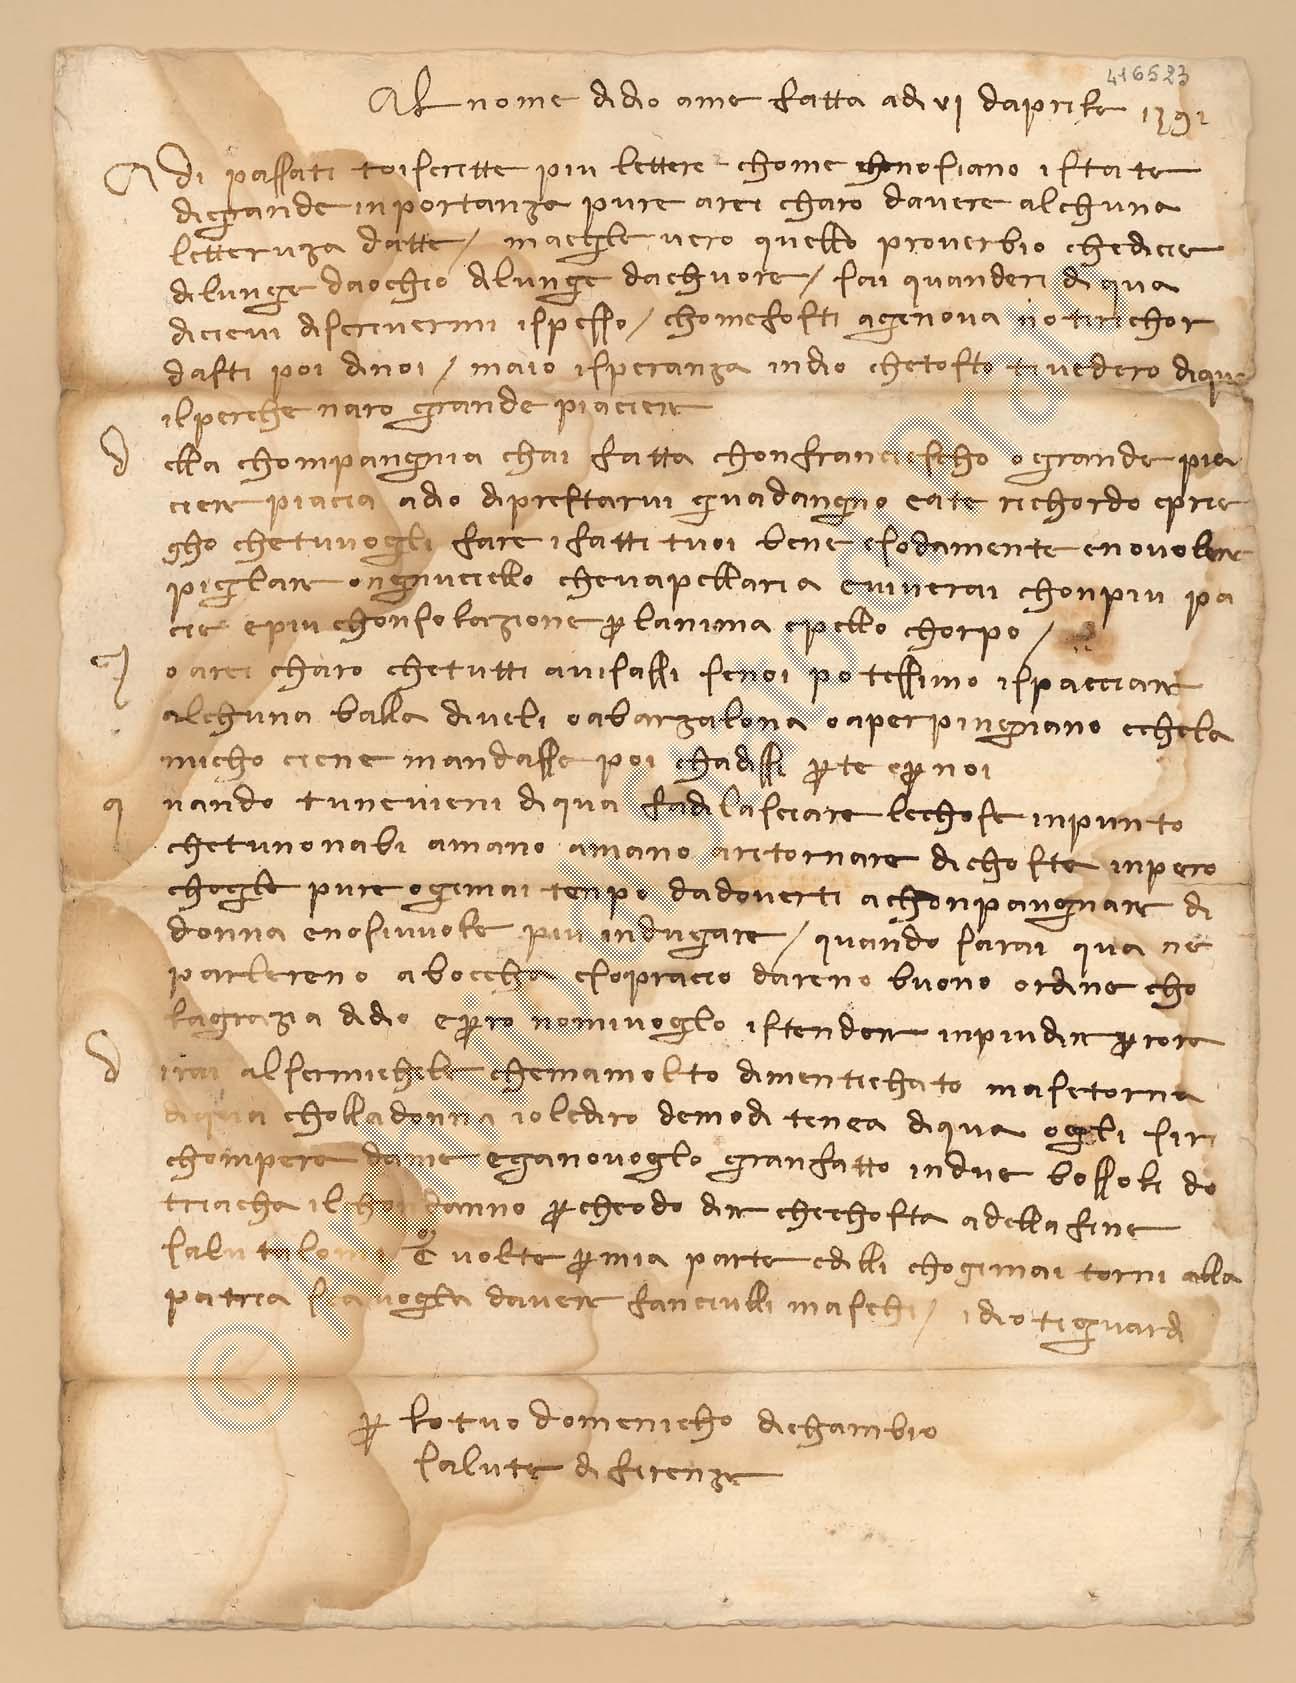 416523
Al nome di dio ame fatta adi vi daprile 1392
A di passati toiscritte piu lettere chome chenosiano istate
digrande inportanza pure arei charo davere alchuna
letteruza datte / maegle vero quello proverbio chedicie
dilunge daochio dilunge dachuore / sai quanderi di qua
dicievi discrivermi ispesso / chomefosti agienova notirichor
dasti poi dinoi / maio isperanza indio chetosto tivedero diqua
ilperche naro grande piaciere
d ella chompangnia chai fatta chonfranciescho o grande pia
ciere piacia adio diprestarvi guadangno eate richordo eprie
gho chetuvogli fare ifatti tuoi bene esodamente enovolere
pigliare ongnuciello chevapellaria eviverai chonpiu pa
cie epiu chonsolazione p lanima epello chorpo /
oarei charo chetutti avisassi senoi potessimo ispacciare
alchuna balla diveli oabarzalona oaperpingniano echela
micho ciene mandasse poi chadissi p te ep noi
q uando tunevieni diqua fadilasciare lechose inpunto
chetunonabi amano amano aritornare dichoste inpero
chegle pure ogimai tenpo dadoverti achonpangnare di
donna enosivuole piu indugiare / quando sarai qua ne
parlereno aboccha esopracio dareno buono ordine cho
lagrazia didio ep ro nomivoglo istendere inpiudire p rora
d irai alsermichele chemamolto dimentichato masetorna
diqua cholladonna iolediro demodi tenea diqua ogli sir
chompera dame eganovoglo granfatto indue bossoli do
triacha ilchondanno p cheodo dire chechosta adellafine
salutalomi C volte p mia parte edilli chogimai torni alla
patria savogla davere fanciulli maschi / idio tiguardi
p lotuo domenicho dichambio
salute di firenze